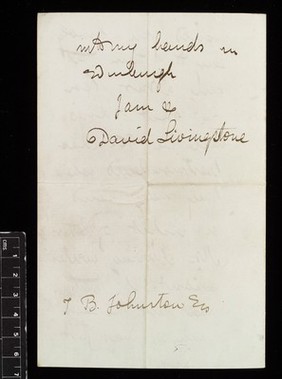 into my hands in
Edinburgh
I am &c
David Livingstone
T B. Johnston Esq
1
2
3
4
5
6
7